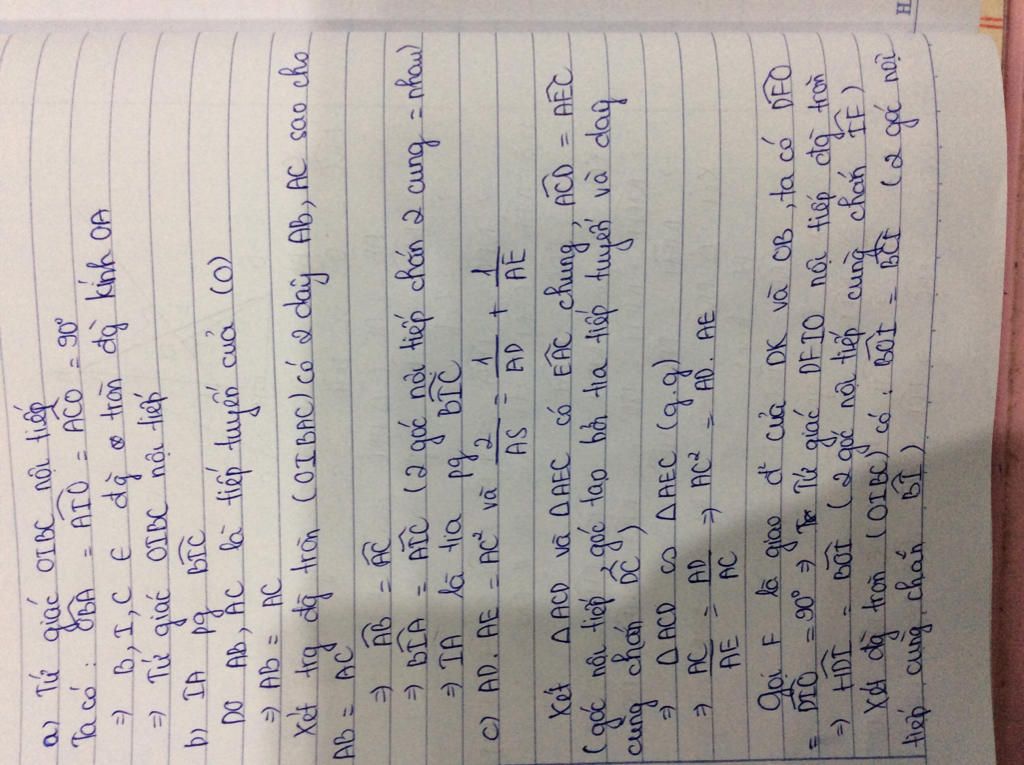 a) Tứ giác OIBC nội tiếp
Ta có : OBA = AIO = ACO = 90°
⇒ B, I, C ∈ đg tròn đg kính OA
⇒ Tứ giác OIBC nội tiếp
b) IA pg BIC
Do AB, AC là tiếp tuyến của (O)
⇒ AB = AC
Xét trg đg tròn (OIBAC) có 2 dây AB, AC sao cho
AB = AC
⇒ AB = AC
⇒ BIA = AIC (2 góc nội tiếp chắn 2 cung = nhau)
⇒ IA là tia pg BIC
c) AD. AE = AC² và 2/AS = 1/AD + 1/AE
Xét ΔACD và ΔAEC có EAC chung, ACD = AEC
(góc nội tiếp, góc tạo bởi tia tiếp tuyến và dây
cung chắn DC)
⇒ ΔACD ∽ ΔAEC (g.g)
⇒ AC/AE = AD/AC ⇒ AC² = AD. AE
Gọi F là giao đ' của DK và OB, ta có DFO
= DIO = 90° ⇒ Tứ giác DFIO nội tiếp đg tròn
⇒ HDI = BOI (2 góc nội tiếp cùng chắn IF)
Xét đg tròn (OIBC) có : BOI = BCI (2 góc nội
tiếp cùng chắn BI)
H